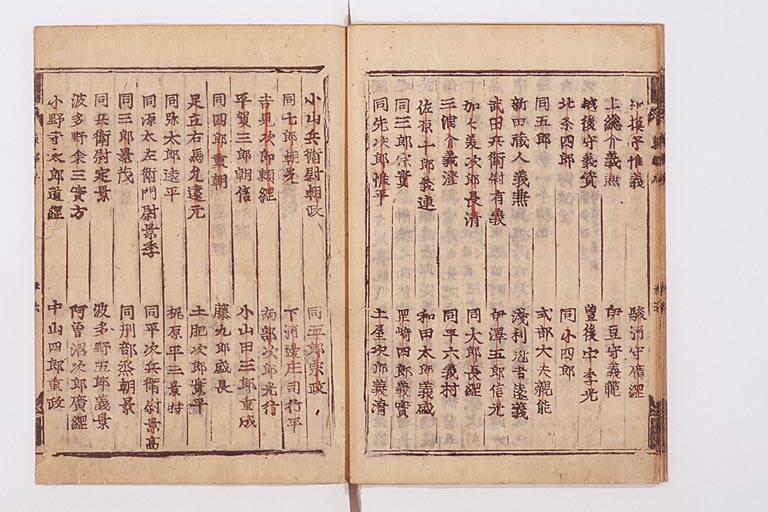 相模守惟義 駿河守廣綱
上総介義兼 伊豆守義範
越後守義資 豊後守季光
北条四郎 同小四郎
同五郎 式部大夫親能
新田蔵人義兼 淺利冠者遠義
武田兵衛尉有義 伊澤五郎信光
加々美次郎長清 同太郎長綱
三浦介義澄 同平六義村
佐原十郎義連 和田太郎義盛
同三郎宗實 岡崎四郎義實
同先次郎惟平 土屋次郎義清
小山兵衛尉朝政 同五郎宗政
同七郎朝光 下河邊庄司行平
吉見次郎頼綱 南部次郎光行
平賀三郎朝信 小山田三郎重成
同四郎重朝 藤九郎盛長
足立右馬允遠元 土肥次郎實平
同弥太郎遠平 梶原平三景時
同源太左衛門尉景季 同平次兵衛尉景高
同三郎景茂 同刑部丞朝景
同兵衛尉定景 波多野五郎義景
波多野余三實方 阿曽沼次郎廣綱
小野寺太郎道綱 中山四郎重政